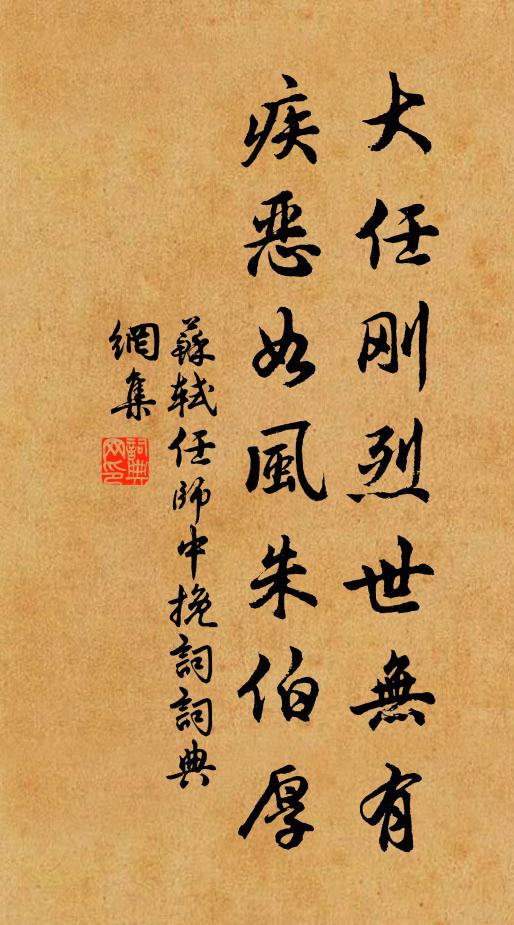 大任刚烈世無有
疾恶如風朱伯厚
蘇軾任師中挽詞詞典
網集
詞典
网印